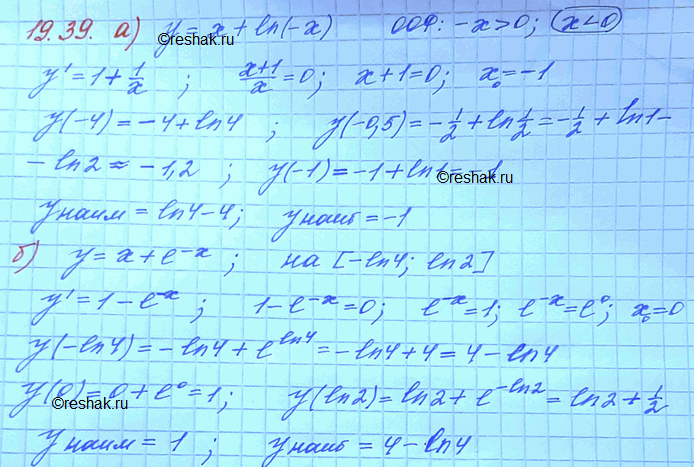 19.39. а) y = x + ln(-x) ООФ: -x > 0; x < 0
©reshak.ru
y' = 1 + 1/x ; (x+1)/x = 0; x + 1 = 0; x₀ = -1
y(-4) = -4 + ln4 ; y(-0,5) = -1/2 + ln 1/2 = -1/2 + ln1 -
- ln2 ≈ -1,2 ; y(-1) = -1 + ln1 = -1
©reshak.ru
y наим = ln4 - 4; y наиб = -1
б) y = x + e^(-x) ; на [-ln4; ln2]
y' = 1 - e^(-x) ; 1 - e^(-x) = 0; e^(-x) = 1; e^(-x) = e^0; x₀ = 0
y(-ln4) = -ln4 + e^(ln4) = -ln4 + 4 = 4 - ln4
y(0) = 0 + e^0 = 1; y(ln2) = ln2 + e^(-ln2) = ln2 + 1/2
©reshak.ru
y наим = 1 ; y наиб = 4 - ln4